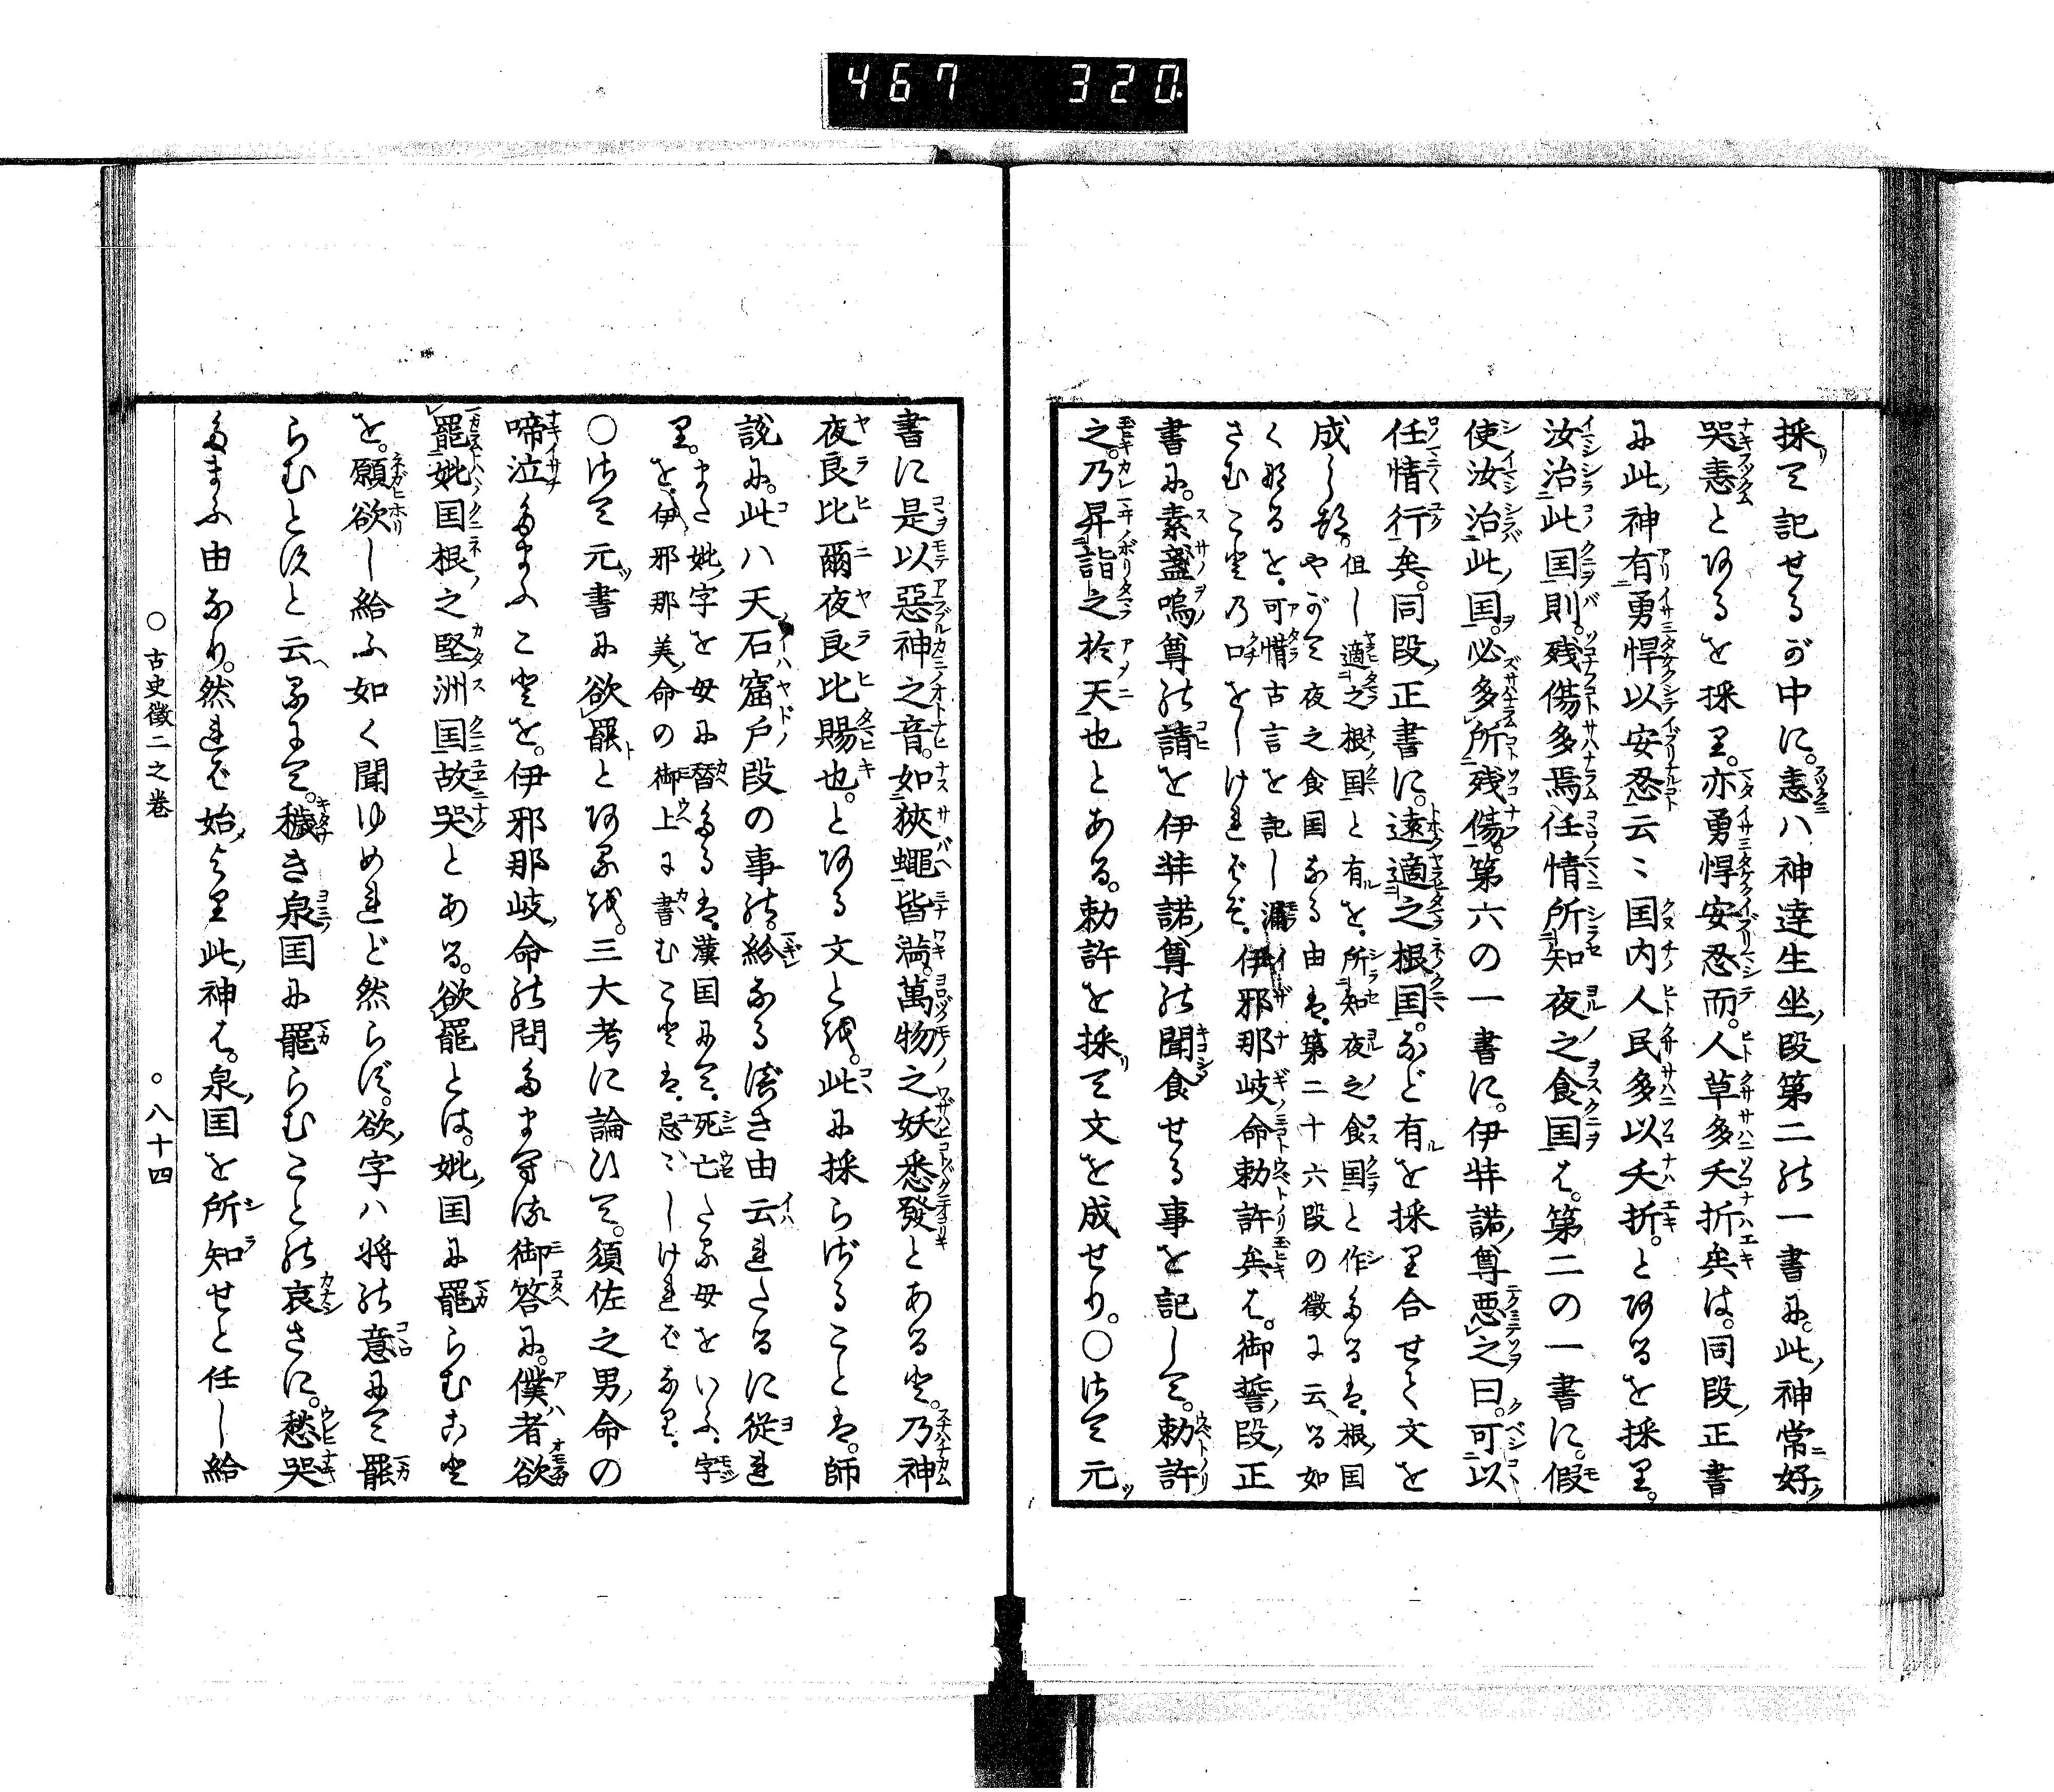 467 320
採て記せるが中に。恚ハ神達生坐段第二の一書に。此神常好
哭恚とあるを採り。亦勇悍安忍而。人草多夭折矣は。同段正書
に此神有勇悍以安忍云〻国内人民多以夭折。とあるを採り。
汝治此国則。残傷多焉任情所知夜之食国は。第二の一書に。假
使汝治此国。必多所残傷。第六の一書に。伊弉諾尊悪之曰。可以
任情行矣。同段正書に。遠適之根国。など有を採り合せて文を
成しぬ。但し適之根国と有を。所知夜之食国と作たるは。根国
やがて夜之食国なる由は。第二十六段の徴に云る如
く故るを。可惜古言を記し漏
さむことの口をしければぞ。伊邪那岐命勅許矣は。御誓段正
書に。素盞嗚尊の請を伊弉諾尊の聞食せる事を記して。勅許
之。乃昇詣之於天也とある。勅許を採て文を成せり。○さて元
書に是以惡神之音。如狹蠅皆満。萬物之妖悉發とある と。乃神
夜良比爾夜良比賜也。とある文とを。此に採らざることは。師
説に。此ハ天石窟戸段の事の。紛なる べき由云れたるに従れ
り。また妣字を母に替たるは。漢国にて。死亡たる母をいふ。字
を。伊邪那美命の御上に書むことは。忌〻しければなり。
○さて元書に欲罷とあるを。三大考に論ひて。須佐之男命の
啼泣たまふことを。伊邪那岐命の問たまへる御答に。僕者欲
罷妣国根之堅洲国故哭とある。欲罷とは。妣国に罷らむこと
を。願欲し給ふ如く聞ゆめれど然らず。欲字ハ将の意にて罷
らむとすと云るにて。穢き泉国に罷らむことの哀さに。愁哭
たまふ由なり。然れば始より此神は。泉国を所知せと任し給
○古史徴二之巻 ○八十四